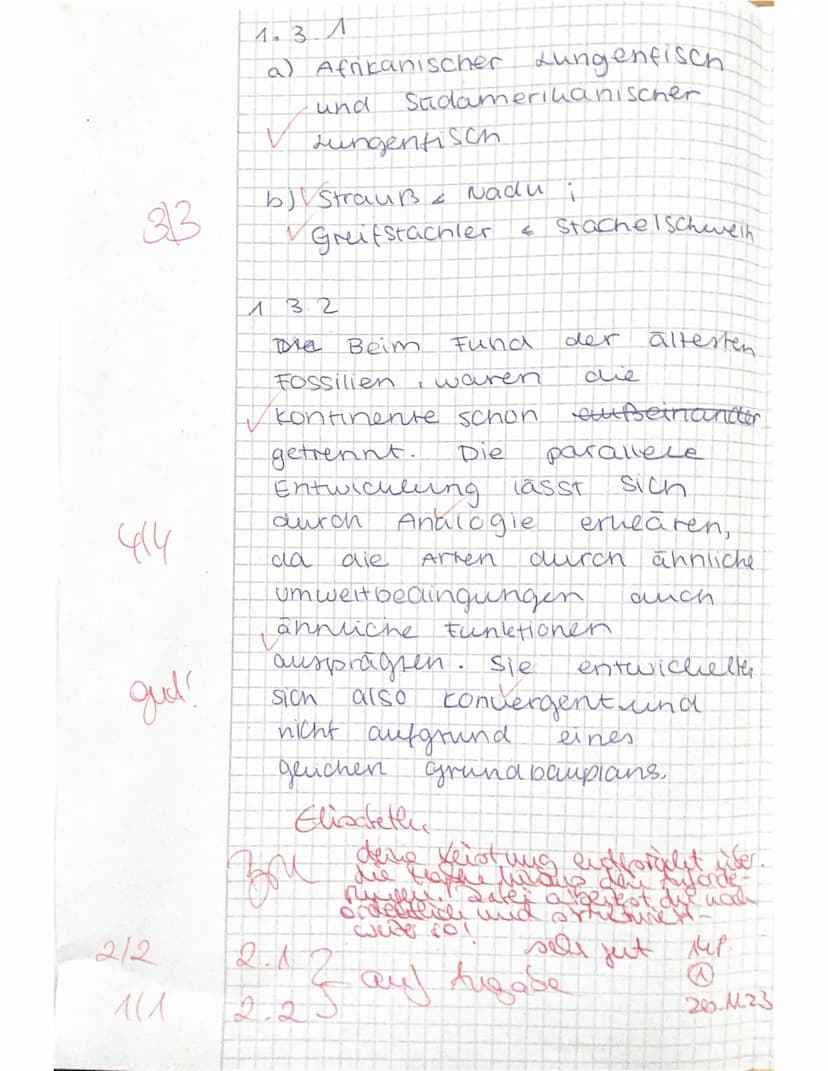 1.3.1
a) Afrikanischer Lungenfisch
und Südamerikanischer
Lungenfisch
3/3
b) Strauß & Nadu ;
Greifstachler & Stachelschwein
1 3.2
Die Beim Fund der ältesten
Fossilien, waren die
Kontinente schon aufeinander
getrennt. Die parallele
Entwicklung lässt sich
durch Analogie erklären,
4/4
da die Arten durch ähnliche
Umweltbedingungen auch
ähnliche Funktionen
ausprägten. Sie entwickelten
gut!
sich also konvergent und
nicht aufgrund eines
gleichen Grundbauplans.
Elisabeth,
deine Leistung entspricht über
die Maße hinaus den Anforde-
rungen. Dabei arbeitest du noch
ordentlich und strukturiert-
weiter so!
sehr gut
2/2
2.1
auf Augabe
1
1/1
2.2
20.11.23